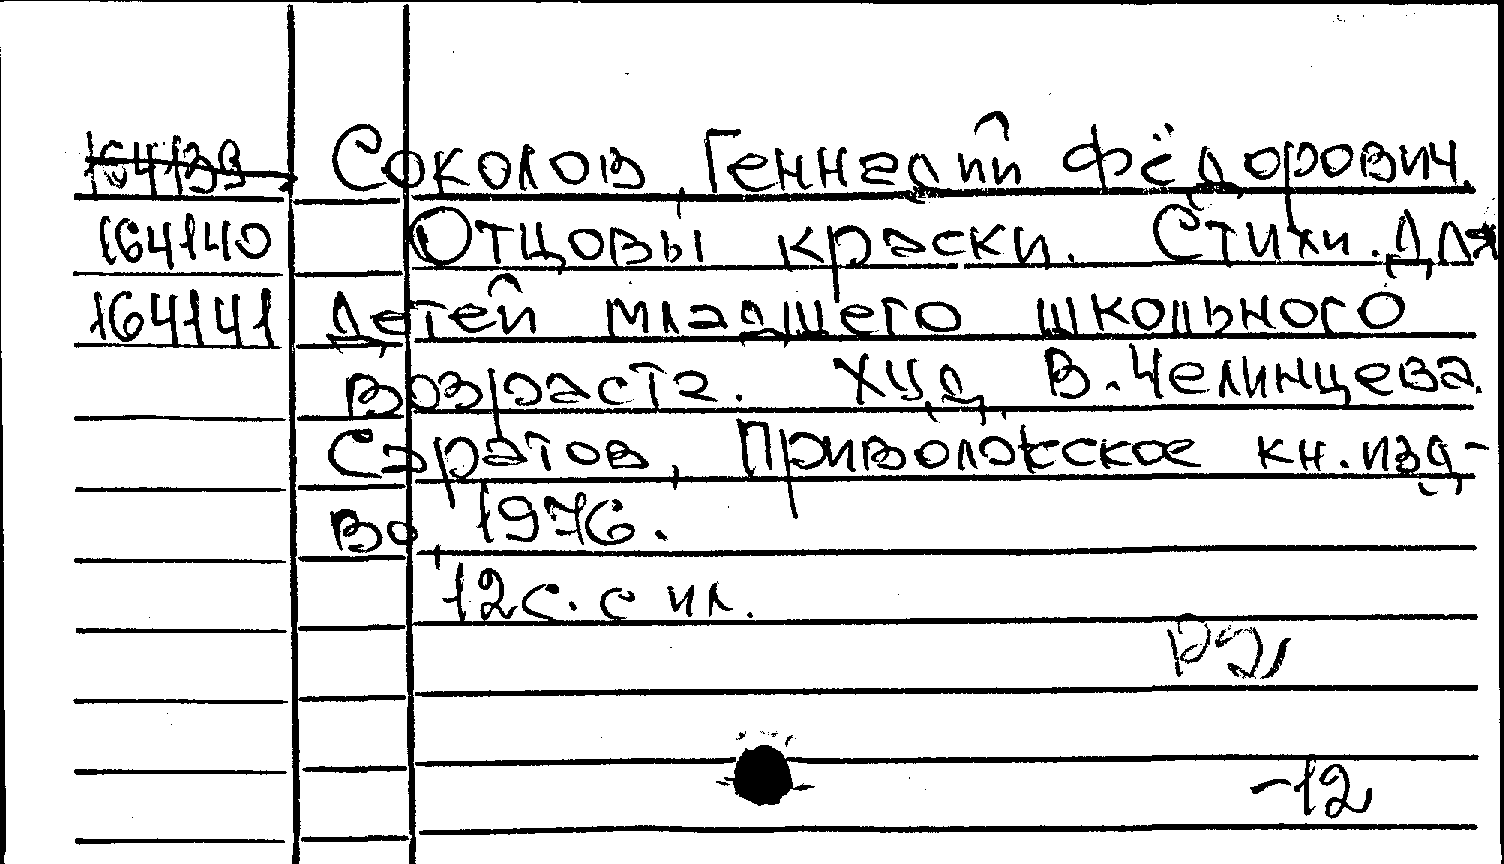 164139 Соколов, Геннадий Фёдорович.
164140 Отцовы краски. Стихи. Для
164141 детей младшего школьного
возраста. Худ. В. Челинцева.
Саратов, Приволжское кн. изд-
во, 1976.
12 с. с ил.
-12